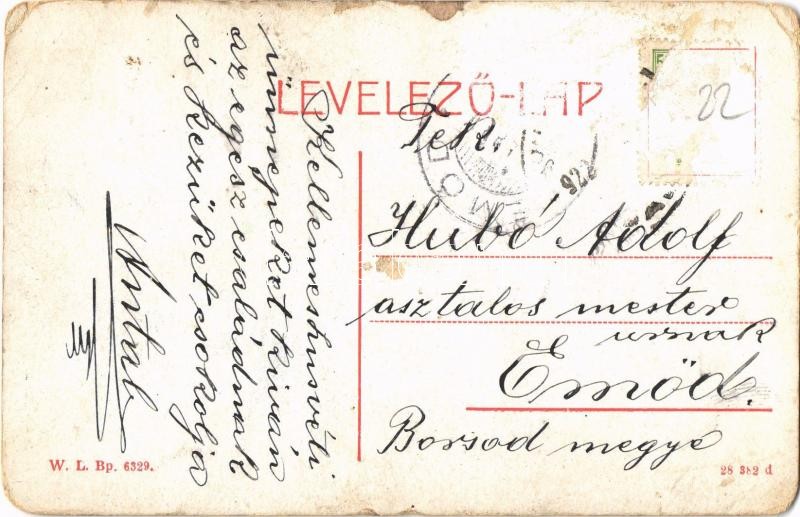 LEVELEZŐ-LAP
22
Tek.
Hubó Adolf
asztalos mester
urnak
Emőd.
Borsod megye
Kellemes husvéti
ünnepeket kiván
az egész családnak
és kezüket csokolja
Antal
W. L. Bp. 6329.
28 382 d